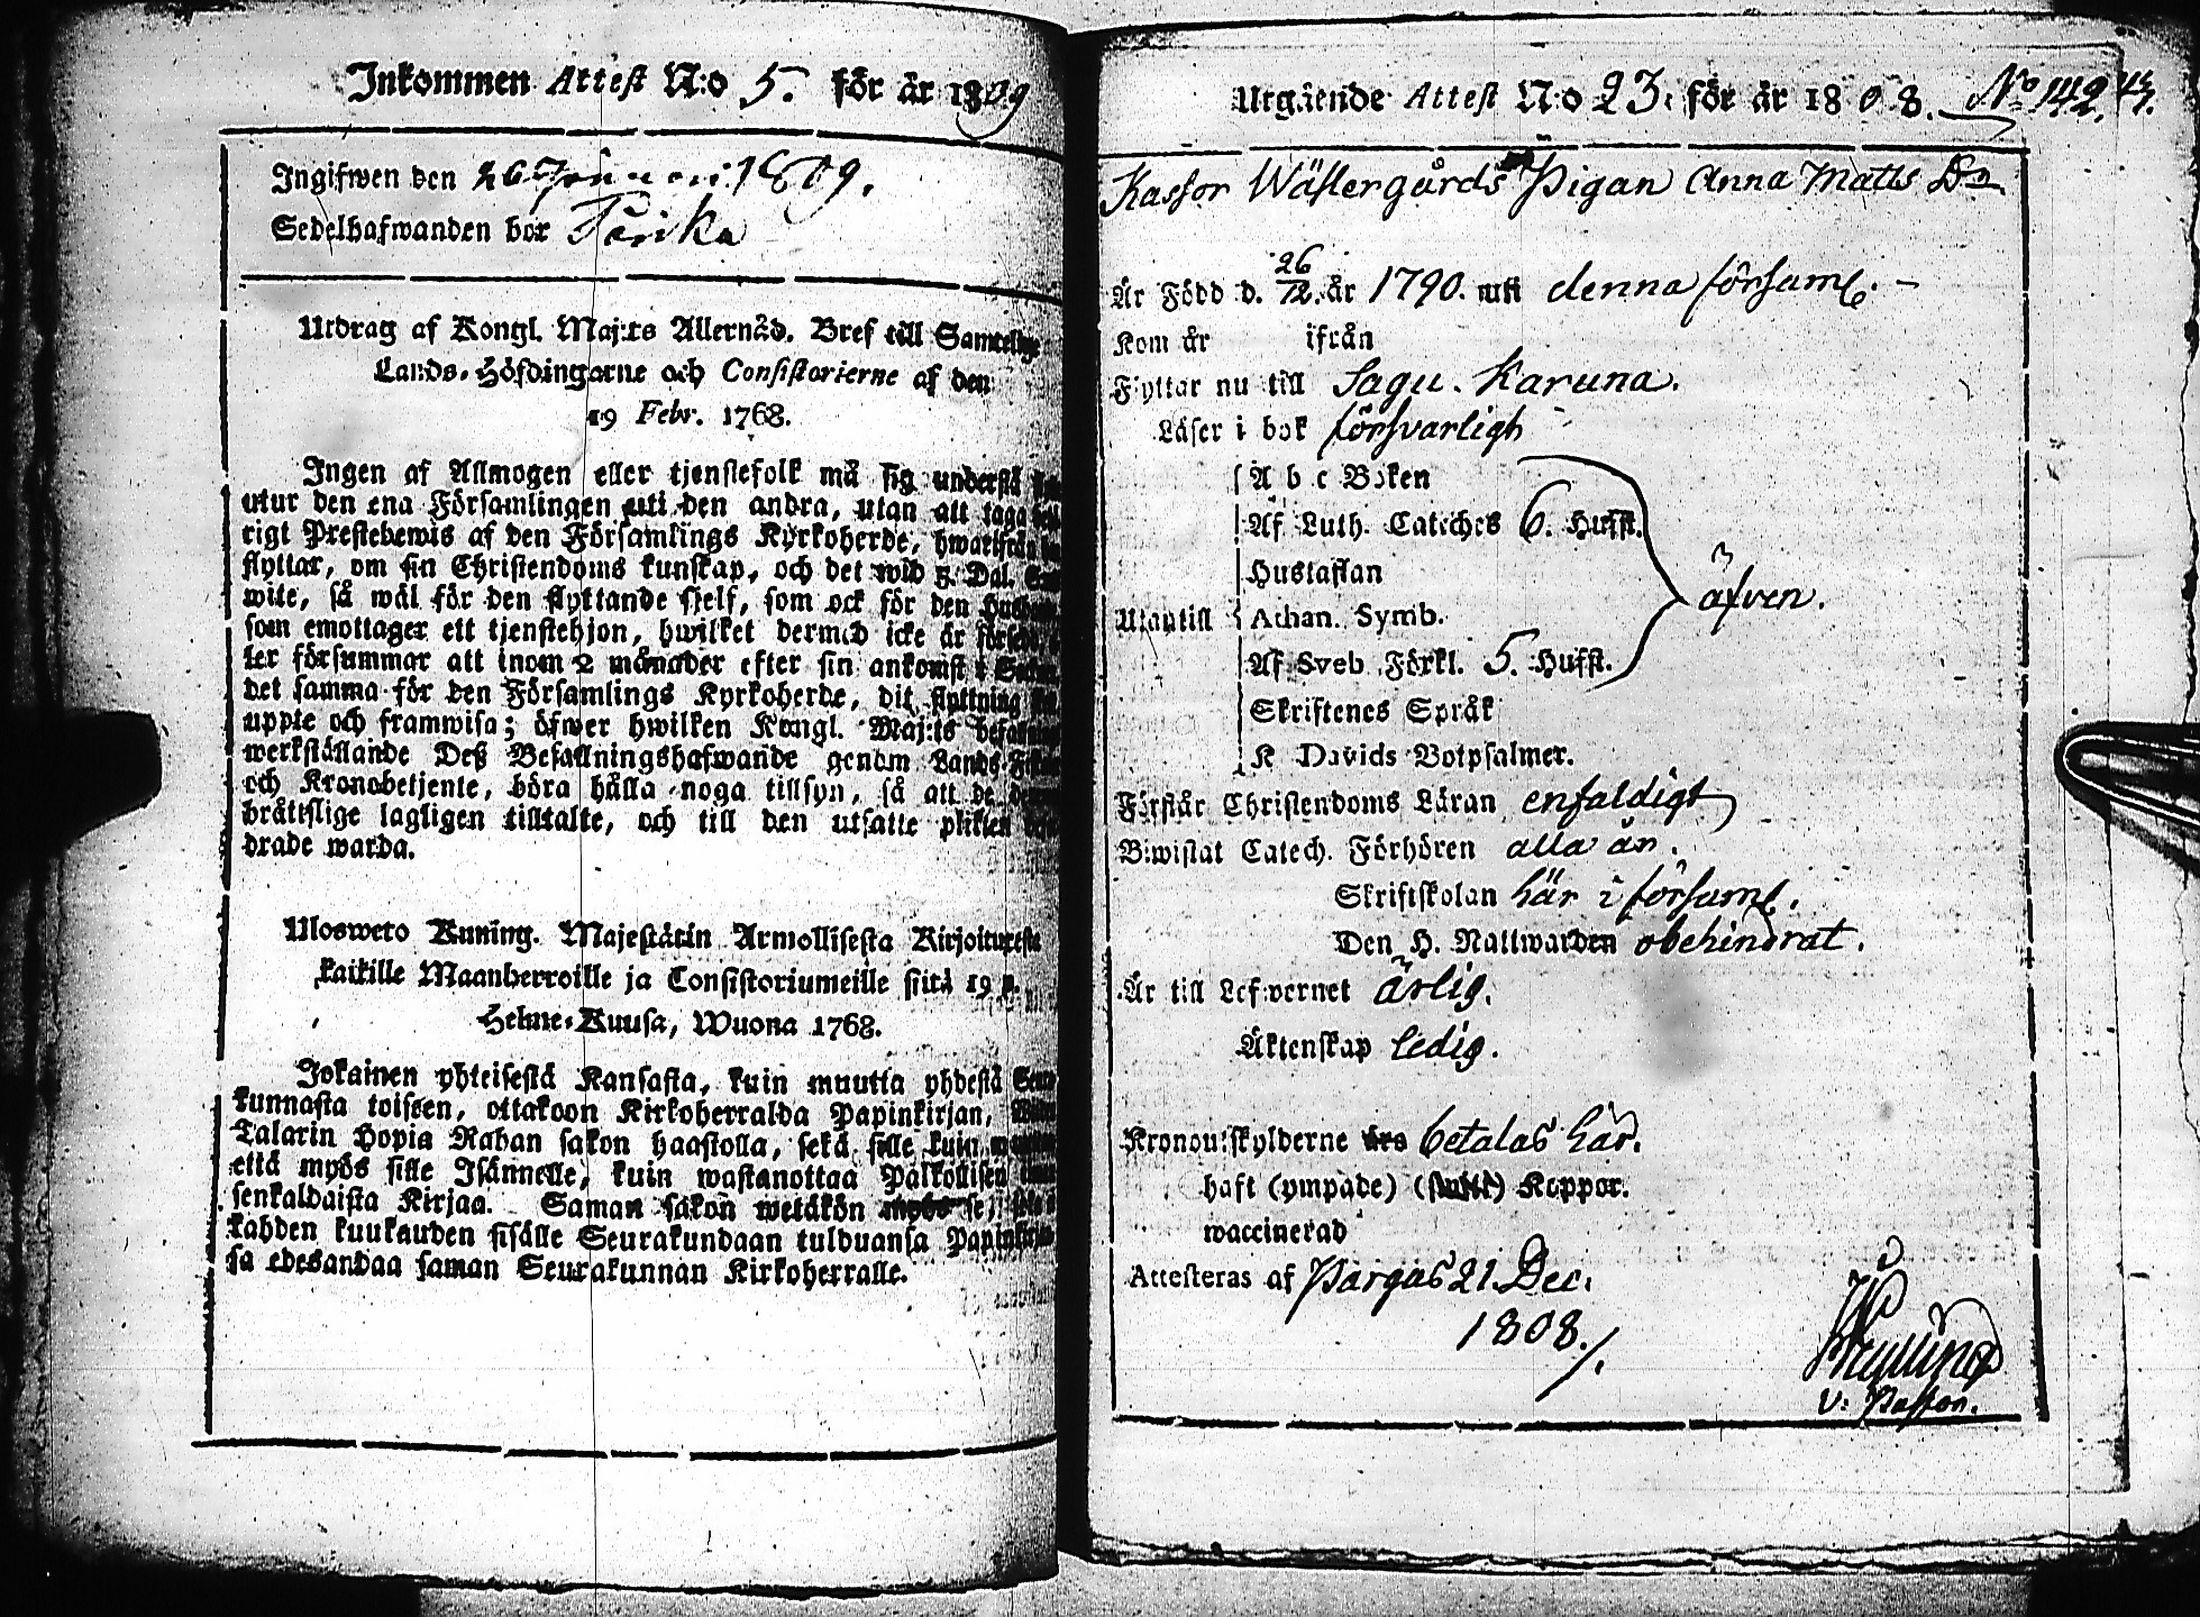 Inkommen Attest N:o 5. för år 1809
Ingifwen den 26 Januari 1809.
Sedelhafwanden bor Parika
Utdrag af Kongl. Maj:ts Allernåd. Bref till Samtelige
Lands-Höfdingarne och Consistorierne af den
19 Febr. 1768.
Ingen af Allmogen eller tjenstefolk må sig understå
utur den ena Församlingen uti den andra, utan att taga
rigt Prestebewis af den Församlings Kyrkoherde, hwarifrån
flyttar, om sin Christendoms kunskap, och det wid 5 Dal.
wite, så wäl för den flyttande sjelf, som ock för den
som emottager ett tjenstehjon, hwilket dermed icke är
ler försummar att inom 2 månader efter sin ankomst
det samma för den Församlings Kyrkoherde, dit flyttning
uppte och framwisa; öfwer hwilken Kongl. Maj:ts befallning
werkställande Deß Befallningshafwande genom Lands-
och Kronobetjente, böra hålla noga tillsyn, så att de
brättslige lagligen tilltalte, och till den utsatte plikten
drade warda.
Ulosweto Kuning. Majestätin Armollisesta Kirjoituxesta
kaikille Maanherroille ja Consistoriumeille siitä 19 p.
Helme-Kuusa, Wuona 1768.
Jokainen yhteisestä Kansasta, kuin muutta yhdestä
kunnasta toiseen, ottakoon Kirkoherralda Papinkirjan,
Talarin Hopia Rahan sakon haastolla, sekä sille kuin
että myös sille Isännelle, kuin wastanottaa Palkollisen
senkaldaista Kirjaa. Saman sakon wetäkön myös se,
kahden kuukauden sisälle Seurakundaan tulduansa
sa edesandaa saman Seurakunnan Kirkoherralle.
Utgående Attest N:o 23. för år 1808. No 142.
Kassor Wästergårds Pigan Anna Matts Dr
Är Född d. 26/12. år 1790. uti denna församl.
Kom år ifrån
Flyttar nu till Sagu. Karuna.
Läser i bok försvarligt
A b c Boken
Af Luth. Cateches 6. Hufst.
Hustaflan
Utantill Athan. Symb. äfven.
Af Sveb. Förkl. 5. Hufst.
Skriftenes Språk
K Davids Botpsalmer.
Förstår Christendoms Läran enfaldigt
Biwistat Catech. Förhören alla år.
Skriftskolan här i församl.
Den H. Nattwarden obehindrat.
Är till Lefwernet ärlig.
Äktenskap ledig.
Kronoutskylderne betalas här.
haft (ympade) Koppor.
waccinerad
Attesteras af Pargas 21. Dec.
1808./.
V: Pastor.